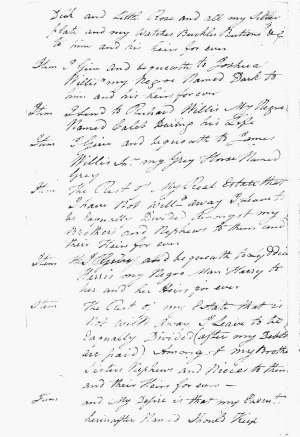 Dick and Little Rose and all my Silver
plate and my Watches Buckles Buttons &c
to him and his heirs for ever
Item I Give and bequeath to Joshua
Willis my Negroe Named Dark to
him and his heirs for ever
Item I Lend to Richard Willis My Negroe
Named Caleb During his Life
Item I Give and bequeath to James
Willis Jur. my Grey Horse Named
Grey
Item The Rest of My Real Estate that
I have Not Will'd away I Leave to
be Eaqually Divided Amongst my
Brothers and Nephews to them and
their Heirs for ever
Item I Give and bequeath to my
Harris my Negroe Man Harry to
her and her Heirs for ever
Item The Rest of my Estate that is
Not Will'd Away I Leave to be
Eaqually Divided (after my Debts
are paid) Amongst my Brothers
Sisters Nephews and Nieces to them
and their Heirs for ever —
Item and My Desire is that my Execut
hereinafter Nam'd Should Keep